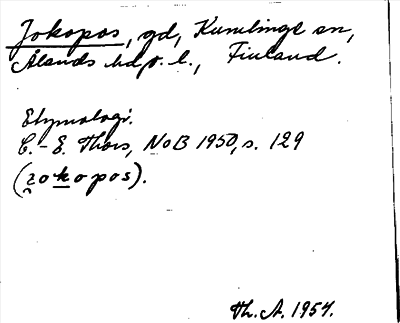 Jokopos, gd, Kumlinge sn,
Ålands hdp.l., Finland.
Etymologi.
C.-E. Thors, NoB 1950, s. 129
(zokopos).
Th. A. 1954.